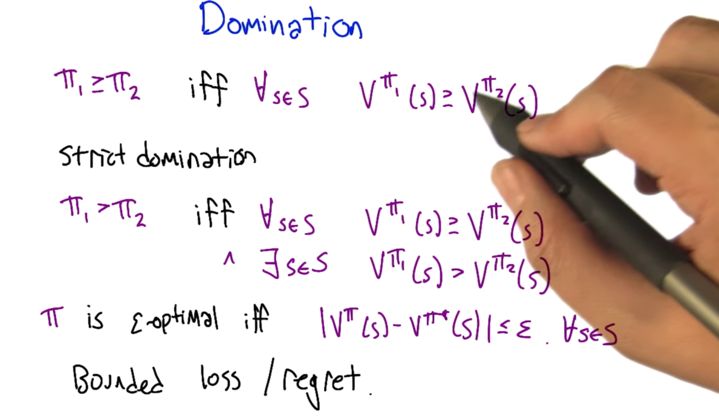 Domination
π₁ ≥ π₂ iff ∀s∈S V^π₁(s) ≥ V^π₂(s)
strict domination
π₁ > π₂ iff ∀s∈S V^π₁(s) ≥ V^π₂(s)
∧ ∃s∈S V^π₁(s) > V^π₂(s)
π is ε-optimal iff |V^π(s) - V^π*(s)| ≤ ε ∀s∈S
Bounded loss / regret.